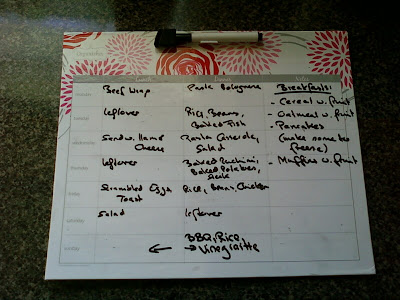 Beef Wrap
Pasta Bolognese
Breakfasts:
- Cereal w. fruit
tuesday
leftover
Rice, Beans,
Baked Fish
- Oatmeal w. fruit
- Pancakes
(make some to
freeze)
- Muffins w. fruit
wednesday
Sandw. Ham &
Cheese
Pasta Casserole,
Salad
thursday
leftover
Baked Zuchini,
Baked Potatoes,
friday
Scrambled Eggs,
Toast
Rice, Beans, Chicken
saturday
Salad
leftover
sunday
BBQ, Rice,
Vinegraitte